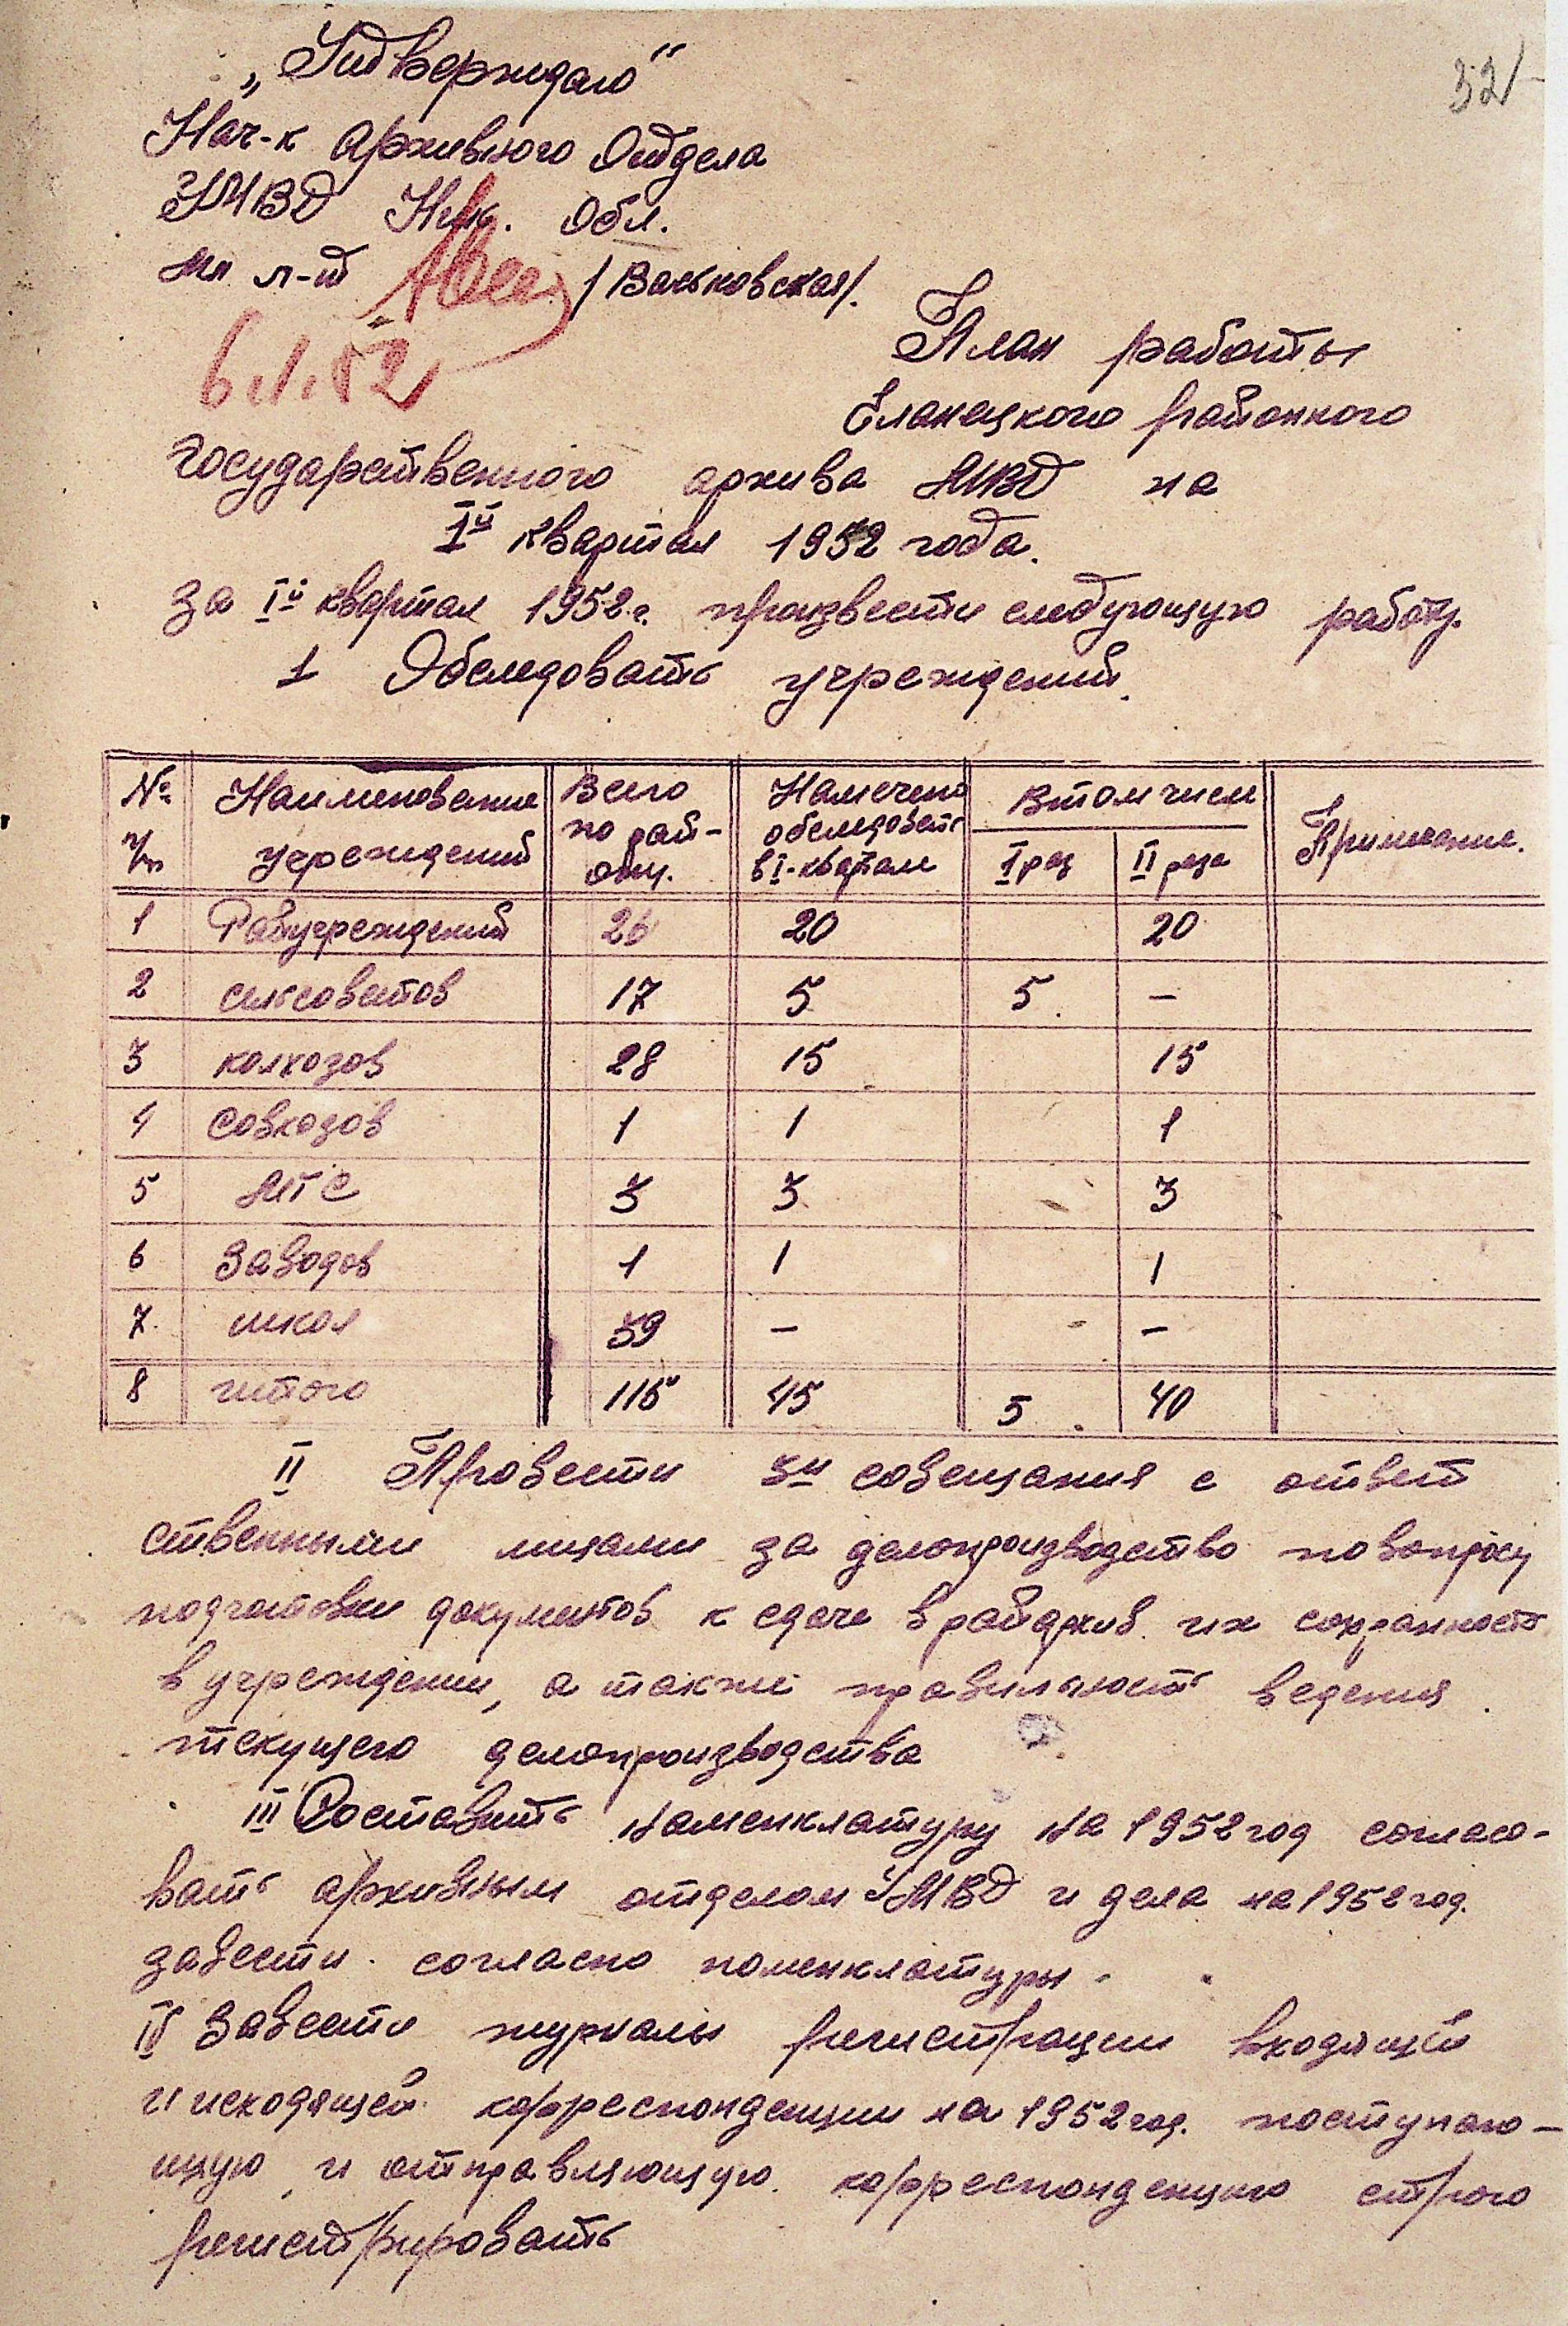 32
„Утверждаю“
Нач-к Архивного Отдела
УМВД Ник. Обл.
мл л-т /Васьковская/.
6.1.52
План работы
Еланецкого районного
государственного архива МВД на
Iй квартал 1952 года.
За Iй квартал 1952 г. произвести следующую работу.
1 Обследовать учреждений.
№ Наименование Всего Намечено В том числе Примечание.
п/п учреждений по рай- обследовать I раз II раза
ону. в I-квартале
1 Райучреждений 26 20 20
2 сельсоветов 17 5 5 —
3 колхозов 28 15 15
4 Совхозов 1 1 1
5 МТС 3 3 3
6 Заводов 1 1 1
7 школ 39 — —
8 итого 115 45 5 40
II Провести 3и совещания с ответ
ственными лицами за делопроизводство по вопросу
подготовки документов к сдаче в райархив их сохранность
в учреждении, а также правильность ведения
текущего делопроизводства
III Составить наменклатуру на 1952 год согласо-
вать архивным отделом УМВД и дела на 1952 год.
завести согласно номенклатуры.
IV Завести журналы регистрации входящей
и исходящей корреспонденции на 1952 год. поступаю-
щую и отправляющую корреспонденцию строго
регистрировать